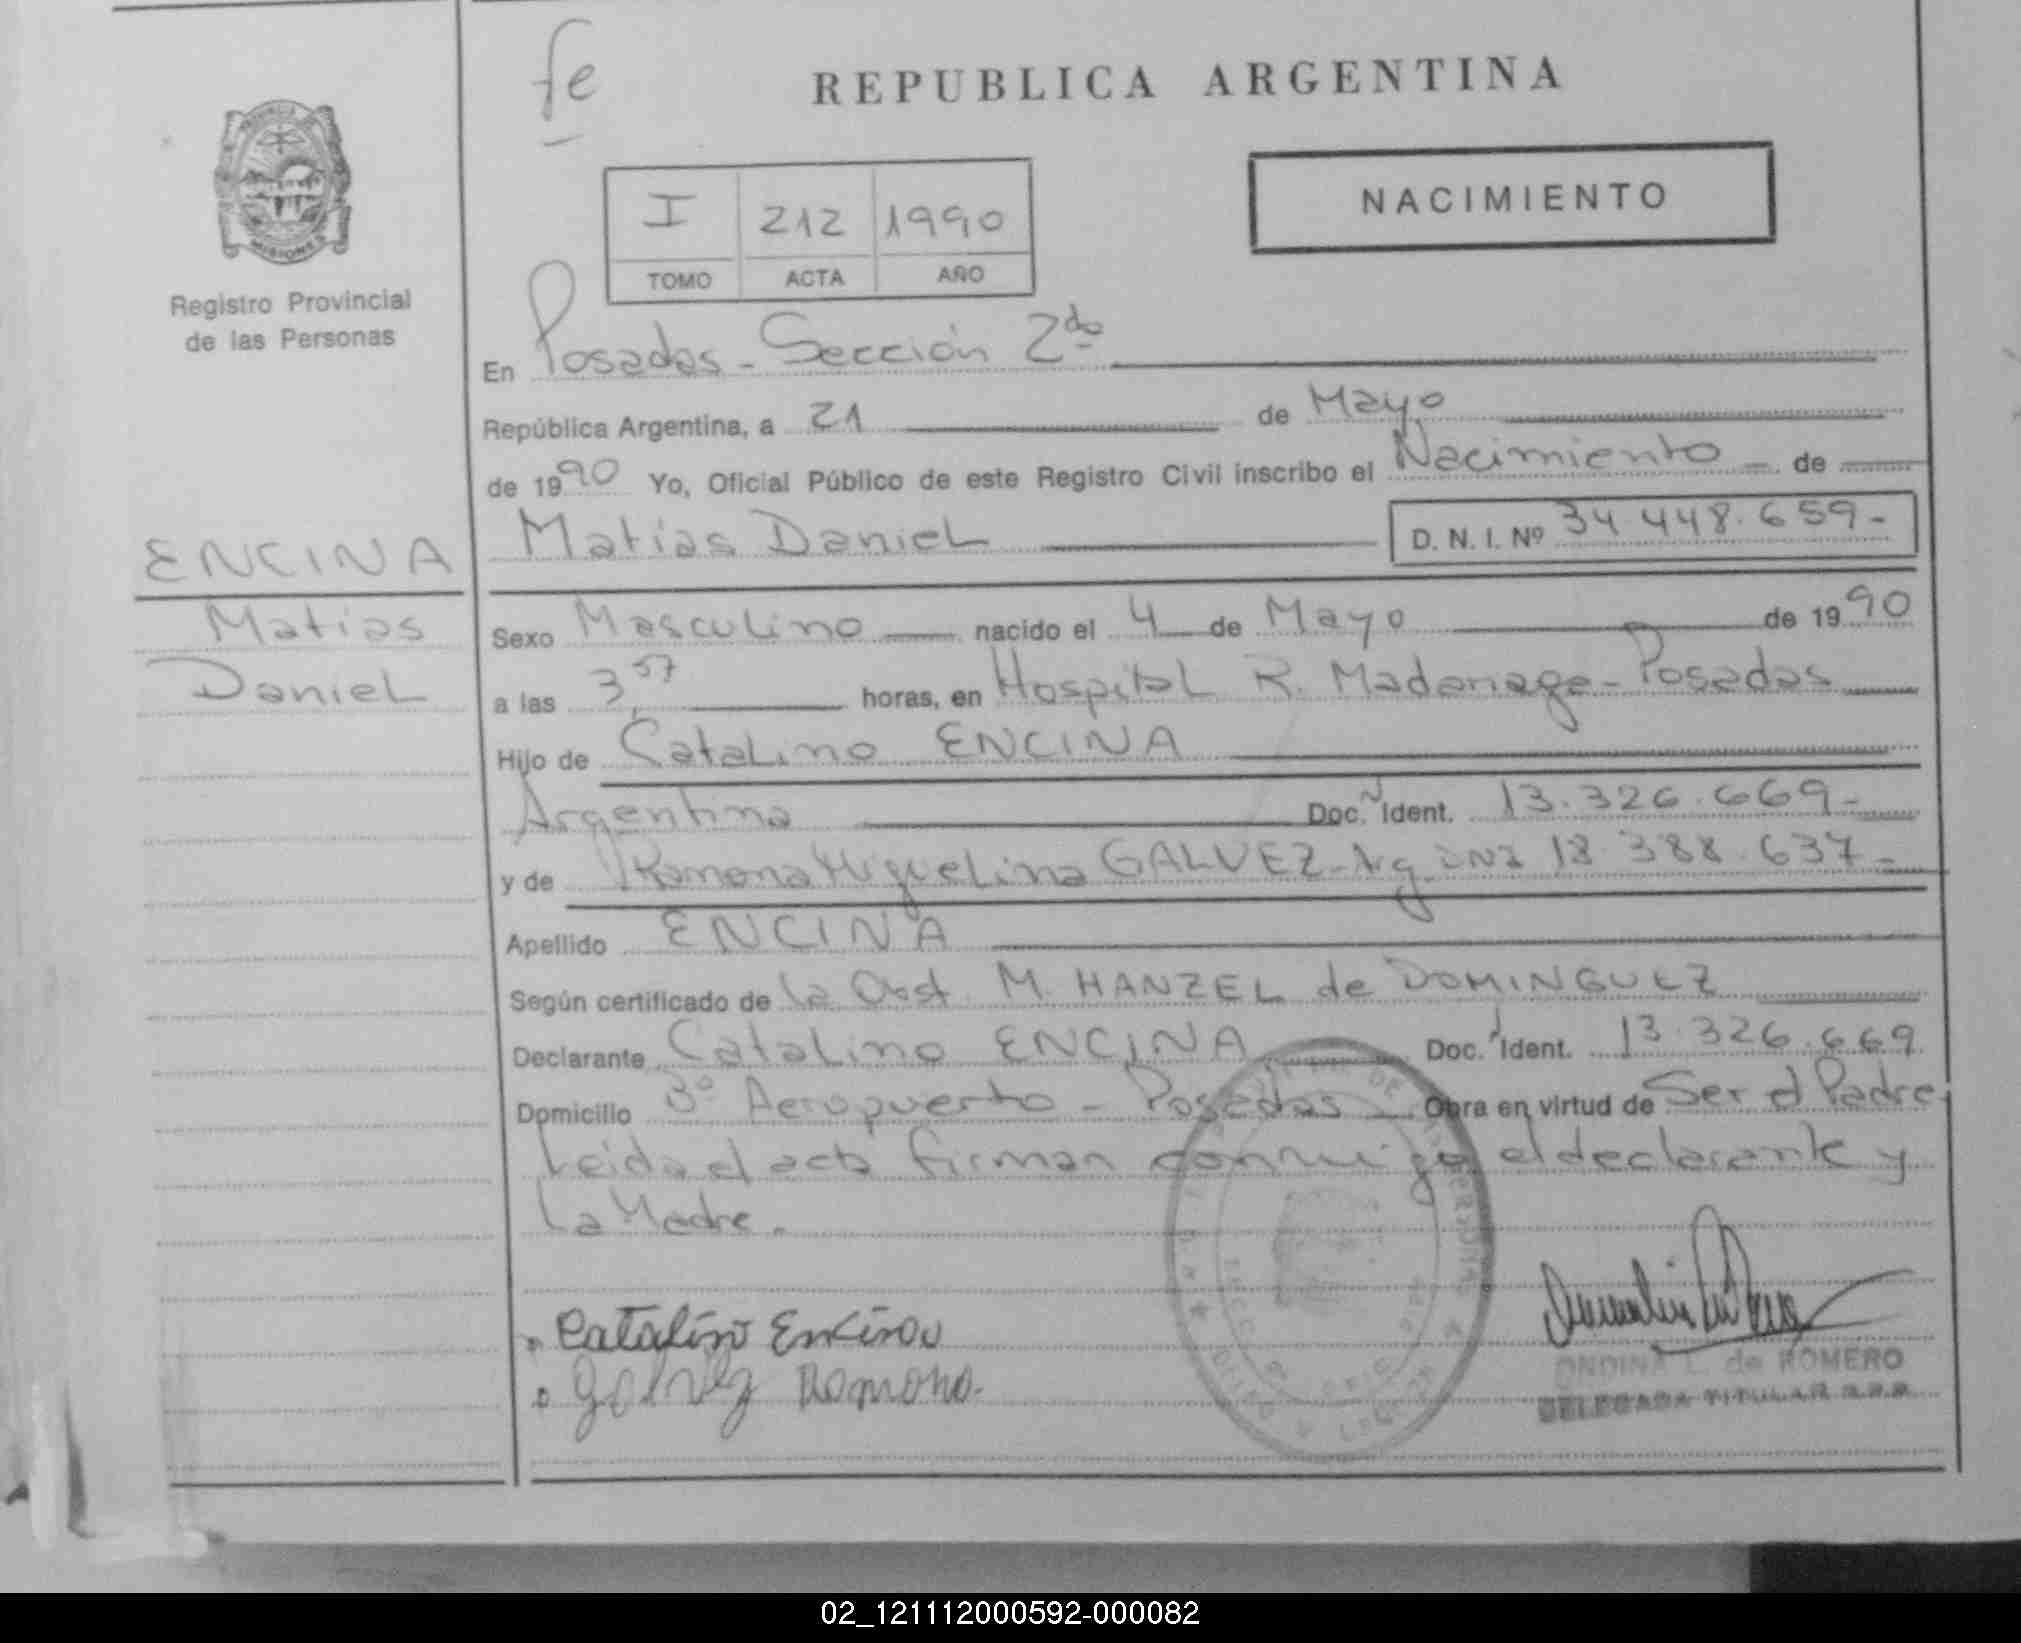 fe
REPUBLICA ARGENTINA
NACIMIENTO
I 212 1990
TOMO ACTA AÑO
Registro Provincial
de las Personas
En Posadas - Sección 2da
República Argentina, a 21 de Mayo
de 1990 Yo, Oficial Público de este Registro Civil inscribo el Nacimiento - de
Matías Daniel D. N. I. Nº 34.448.659-
ENCINA
Matías
Daniel
Sexo Masculino nacido el 4 de Mayo de 1990
a las 3,57 horas, en Hospital R. Madariaga - Posadas
Hijo de Catalino ENCINA
Argentina Doc. Ident. 13.326.669-
y de Ramona Miguelina GALVEZ - Arg. DNI 18.388.637-
Apellido ENCINA
Según certificado de la Obst. M. HANZEL de DOMINGUEZ
Declarante Catalino ENCINA Doc. Ident. 13.326.669
Domicilio Bº Aeropuerto - Posadas - Obra en virtud de Ser el Padre,
Leida el acta firman conmigo el declarante y
La Madre.
Catalino Encina
Galvez Ramona.
ONDINA L. de ROMERO
DELEGADA TITULAR R.P.P.
02_121112000592-000082